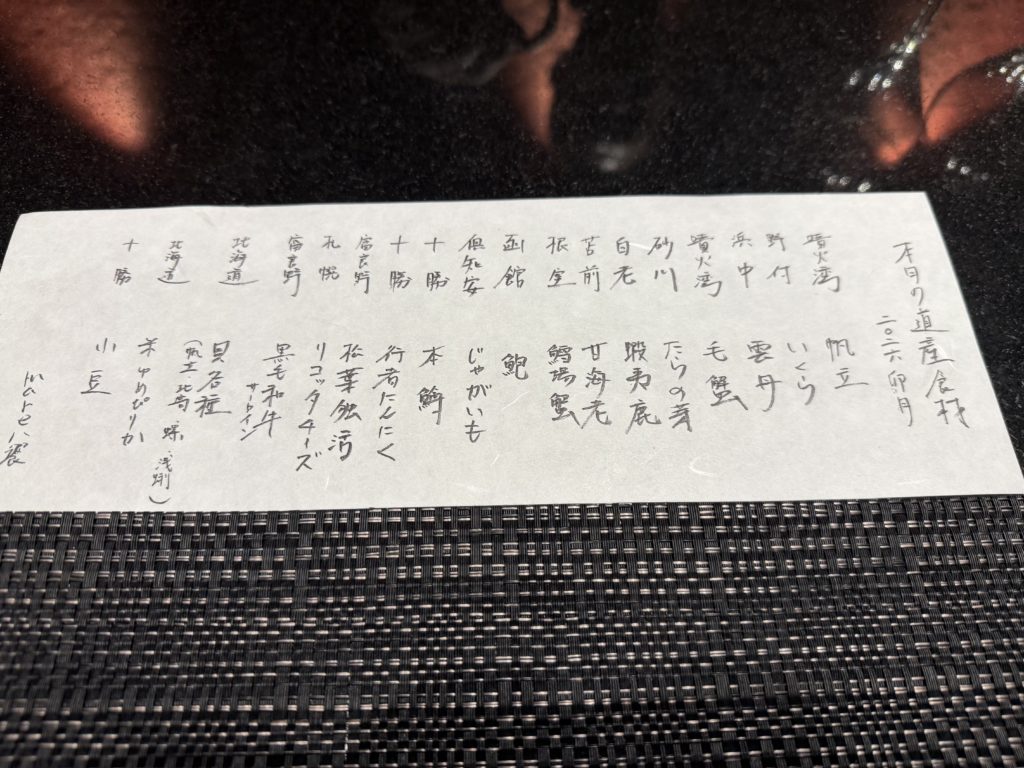 本日の道産食材
二〇二六 卯月
噴火湾 帆立
野付 いくら
浜中 雲丹
噴火湾 毛蟹
砂川 たらの芽
白老 蝦夷鹿
苫前 甘海老
根室 鱈場蟹
函館 鮑
倶知安 じゃがいも
十勝 本
十勝 行者にんにく
富良野 松葉独活
札幌 リコッタチーズ
富良野 黒毛和牛
サーロイン
北海道 貝各種
(帆立 北寄 螺、浅蜊)
北海道 米ゆめぴりか
十勝 小豆